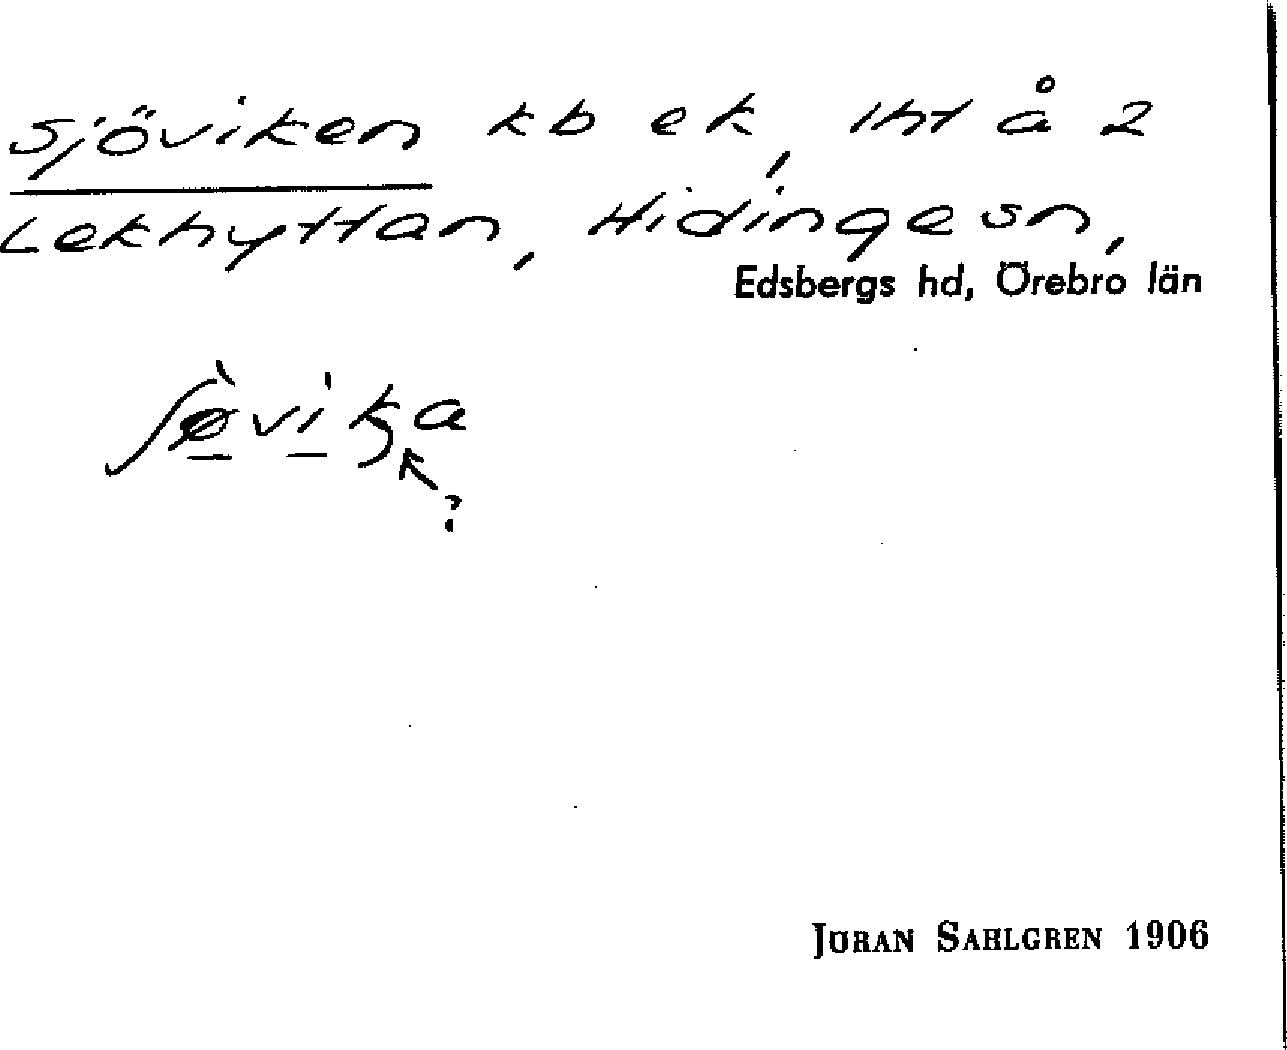 Sjöviken kb ek, lht å 2
Lekhyttan, Hidinge sn,
Edsbergs hd, Örebro län
?
JÖRAN SAHLGREN 1906